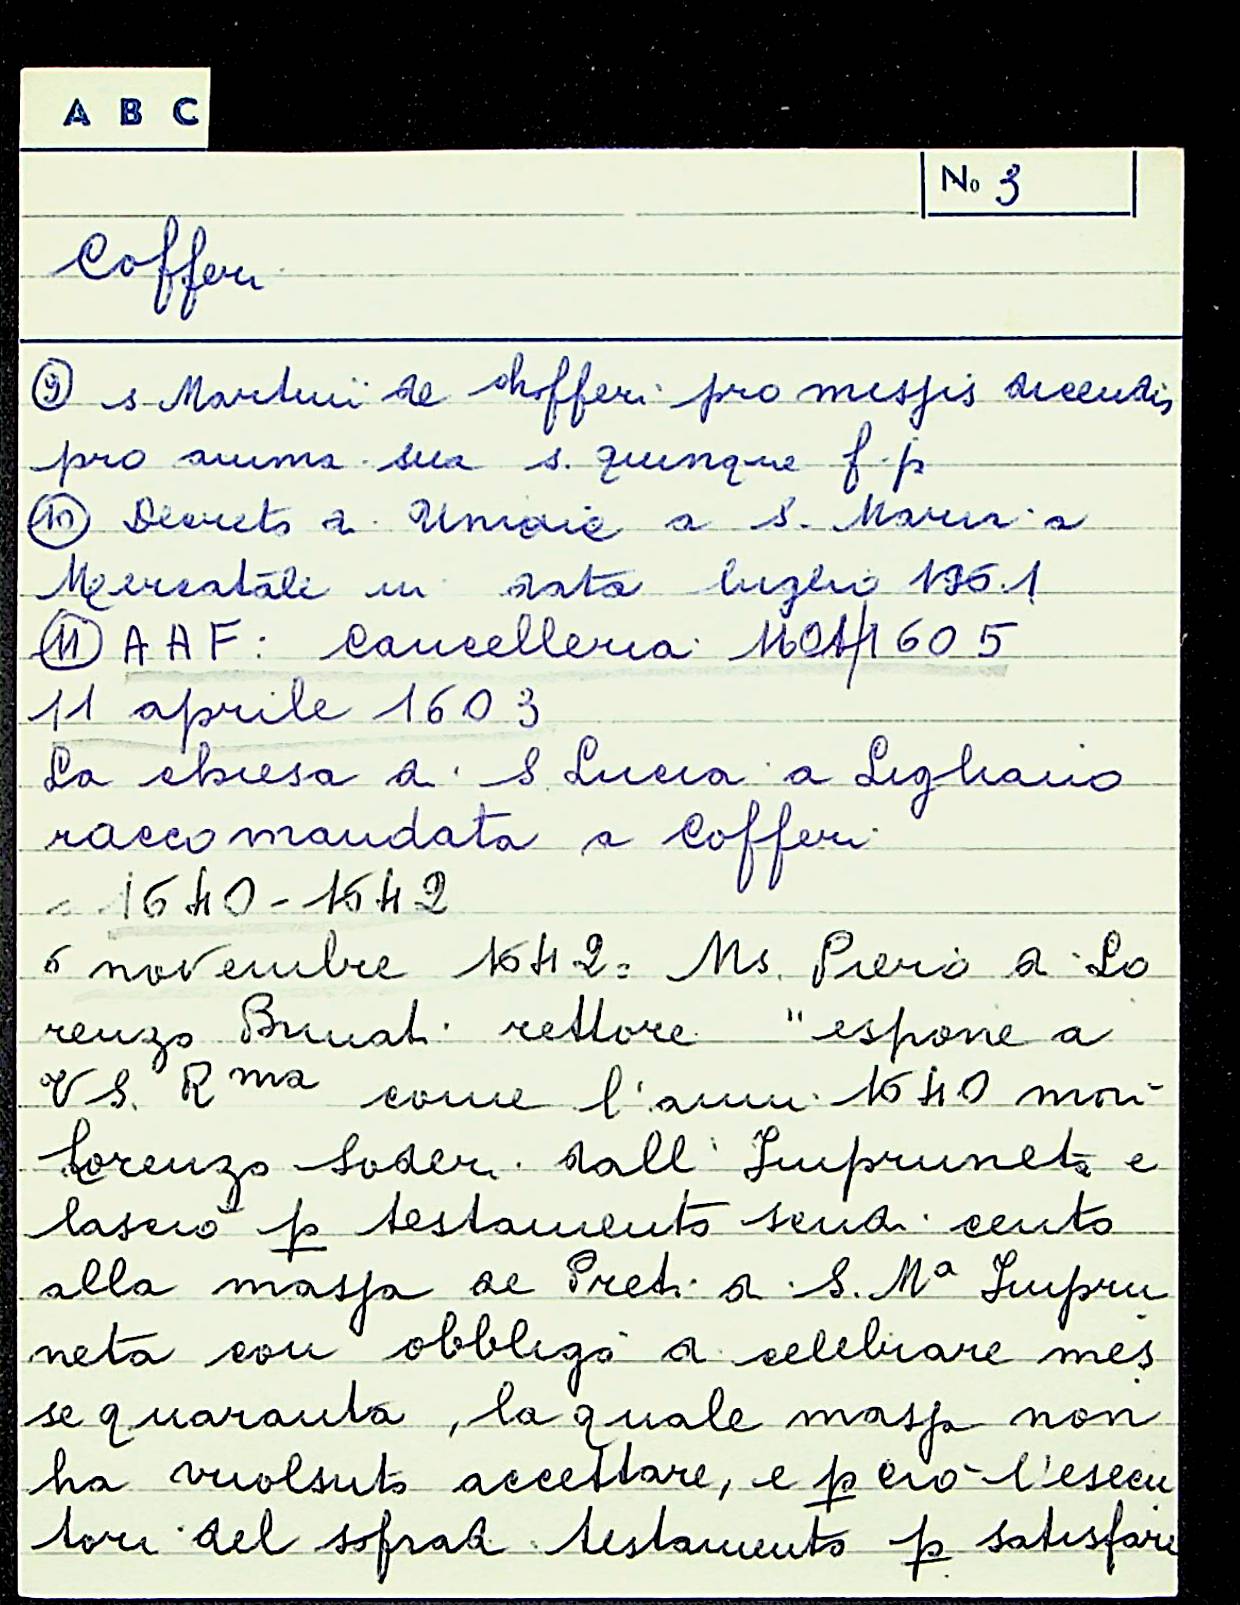 A B C
No 3
Cofferi
⑨ s Martini de chofferi pro missis dicendis
pro anima sua s. quinque f. p
⑩ Decreto di Unione a S. Maria a
Mercatale in data luglio
⑪ AAF: Cancelleria: 1605
11 aprile 1603
La chiesa di S Lucia a Ligliano
raccomandata a Cofferi
1640-1642
6 novembre 1642: Ms. Piero di Lo
renzo Brunati rettore "espone a
VS. Rma come l'anni 1640 morì
Lorenzo Soderi dall'Impruneta e
lasciò p testamento scudi cento
alla massa de Preti di S. Mª Impru
neta con obbligo di celebrare mes
se quaranta, la quale massa non
ha vuolsuto accettare, e p ciò l'esecu
tori del sofrad. testamento p satisfare